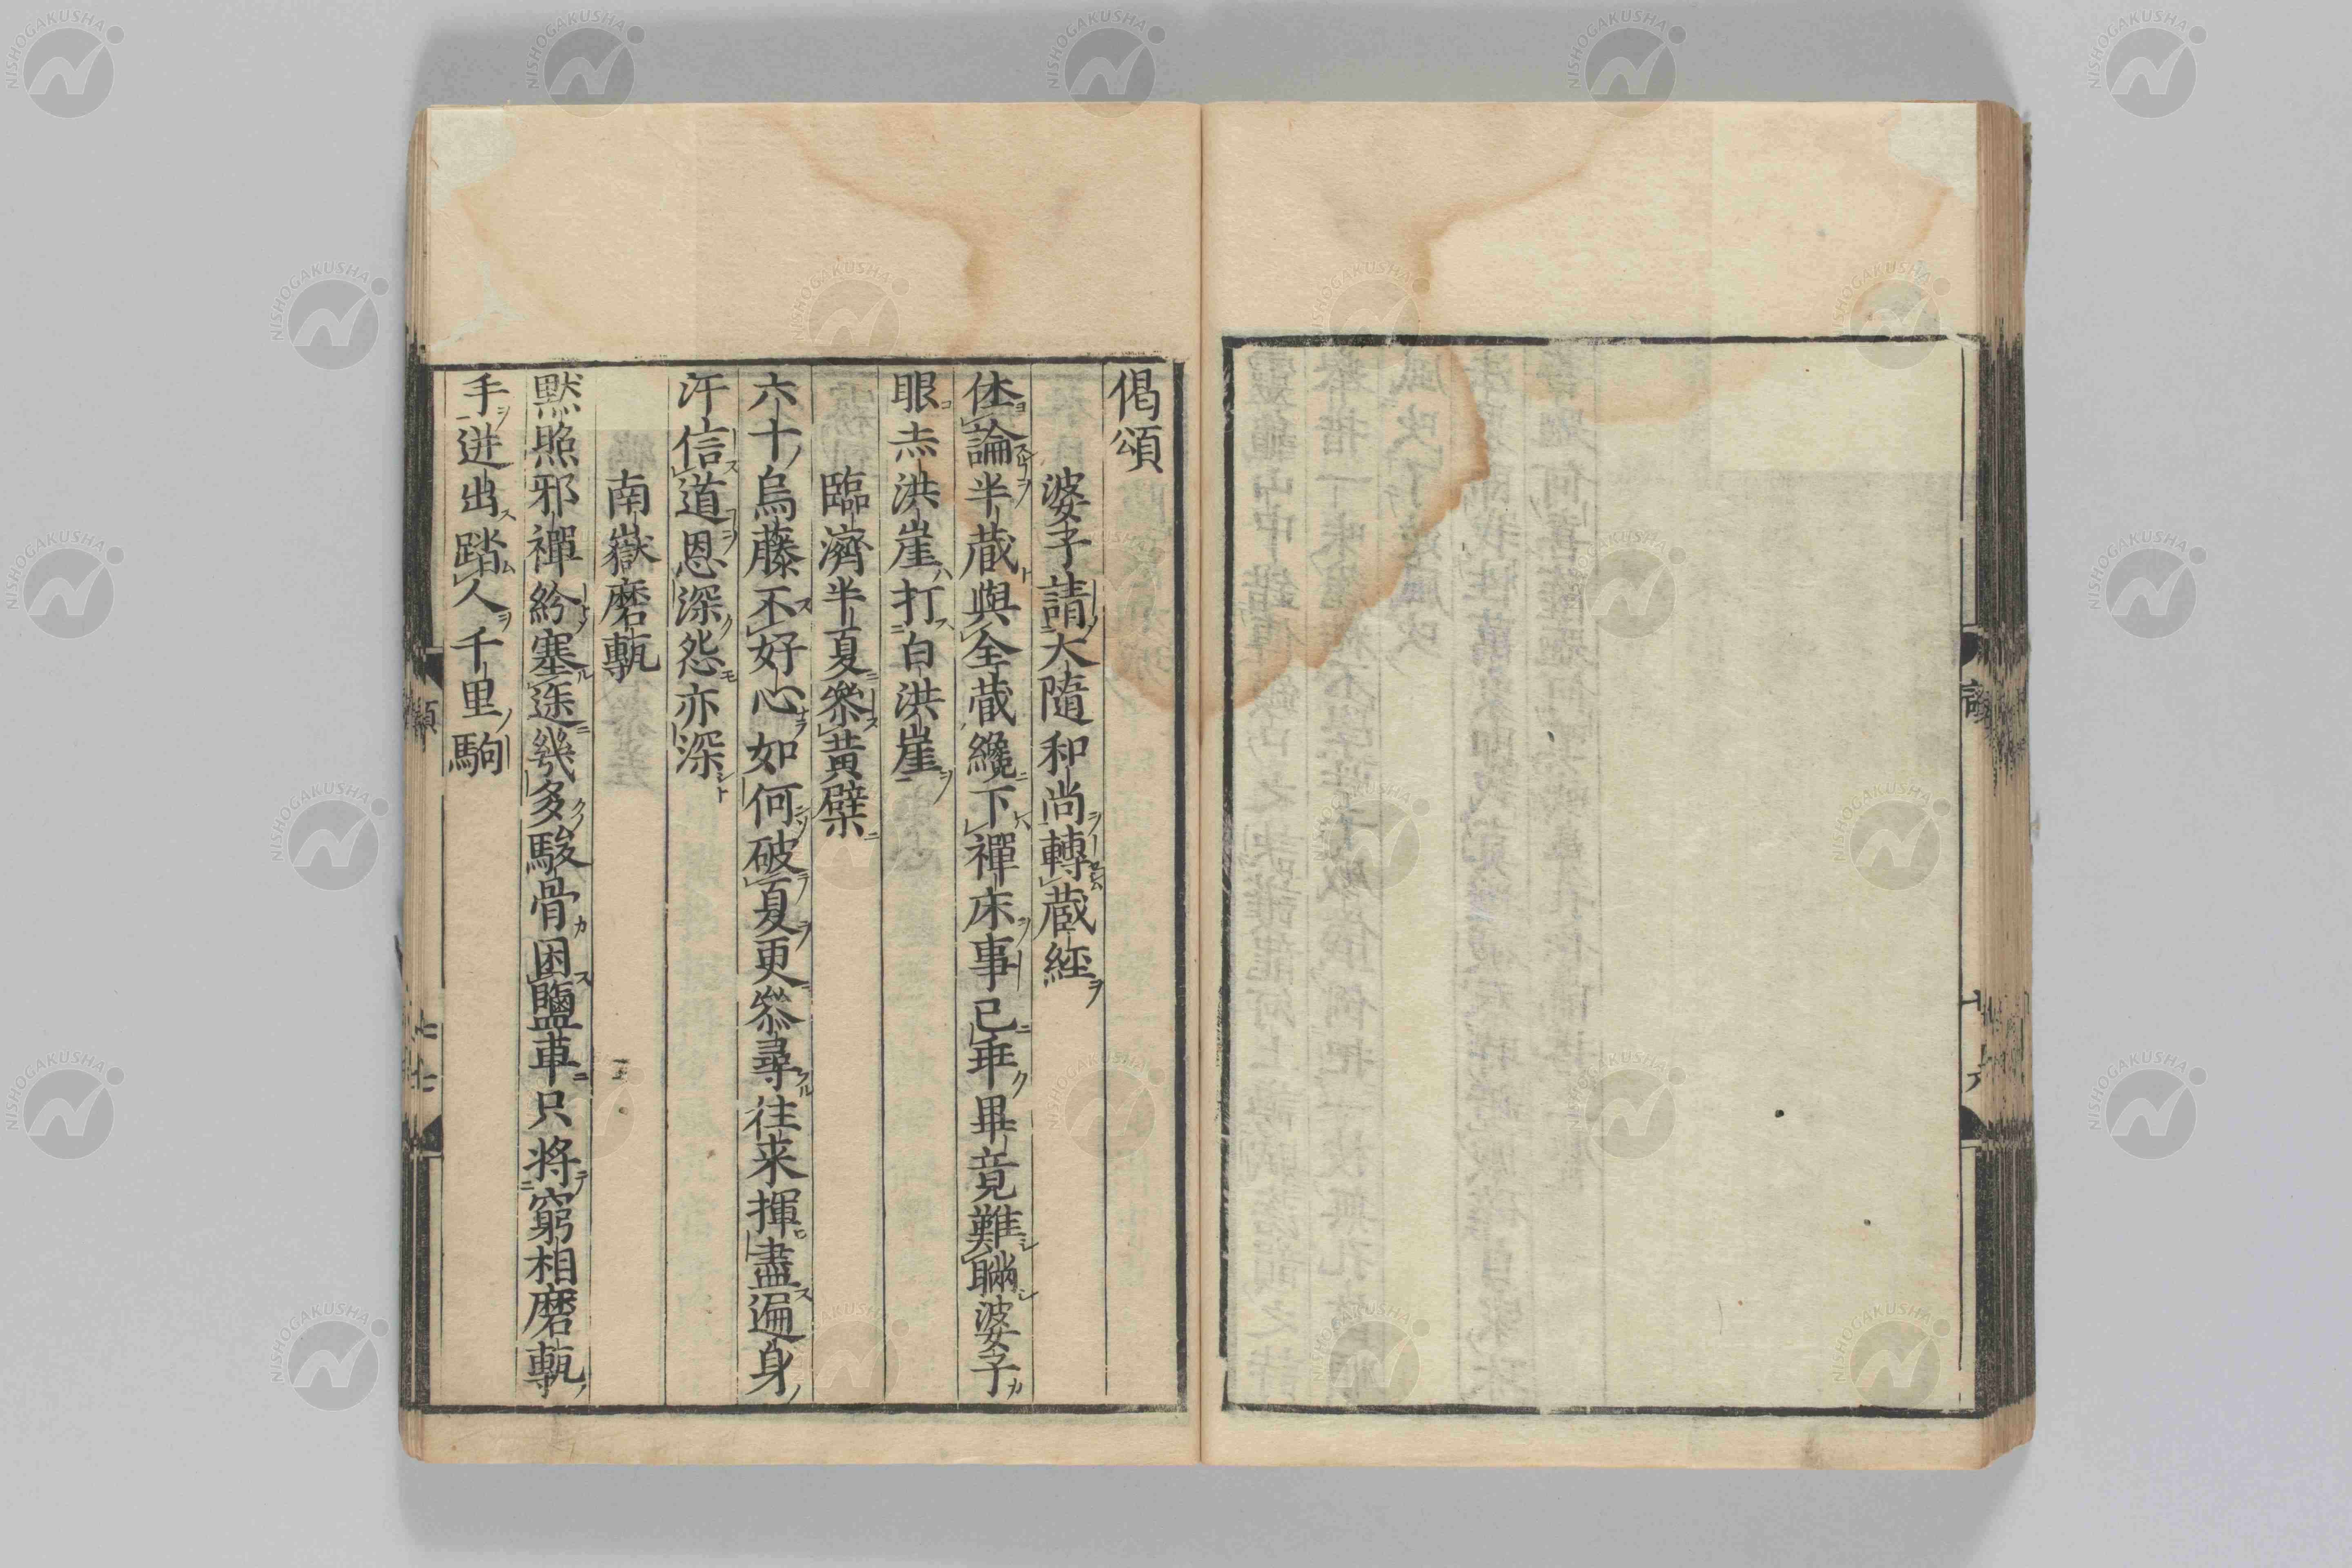 偈頌
婆子請大隨和尚轉蔵経
休論半蔵與全蔵纔下禪床事已乖畢竟難瞞婆子
眼赤洪崖打白洪崖
臨濟半夏叅黄檗
六十烏藤不好心如何破夏更叅尋往来揮盡遍身
汗信道恩深怨亦深
南嶽磨甎
黙照邪禪紛塞途幾多駿骨困鹽車只將窮相磨甎
手迸出踏人千里駒